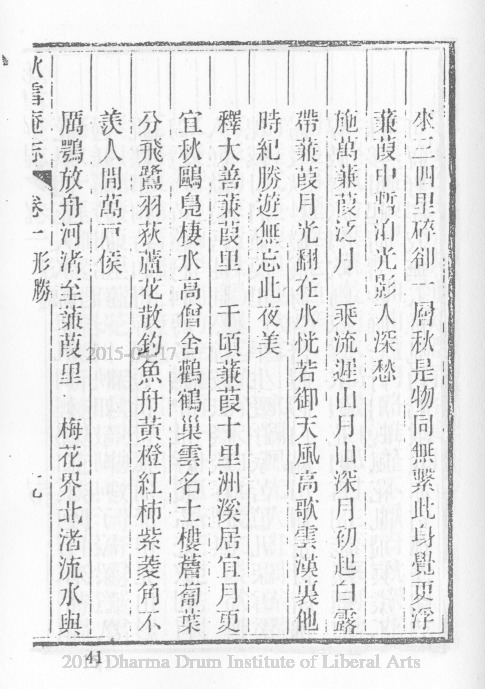 來三四里碎卻一層秋是物同無繫此身覺更浮
蒹葭中暫泊光影人深愁
施萬蒹葭泛月　乘流遲山月山深月初起白露
帶蒹葭月光翻在水恍若御天風高歌雲漢裏他
時紀勝遊無忘此夜美
釋大善蒹葭里　千頃蒹葭十里洲溪居宜月更
宜秋鷗鳧棲水高僧舍鸛鶴巢雲名士樓蘆葡葉
分飛鷺羽荻蘆花散釣魚舟黃橙紅柿紫菱角不
羨人間萬戶侯
厲鶚放舟河渚至蒹葭里　梅花界北渚流水與
秋雪菴志　卷一形勝　九
2015-04-17
41
2015 Dharma Drum Institute of Liberal Arts